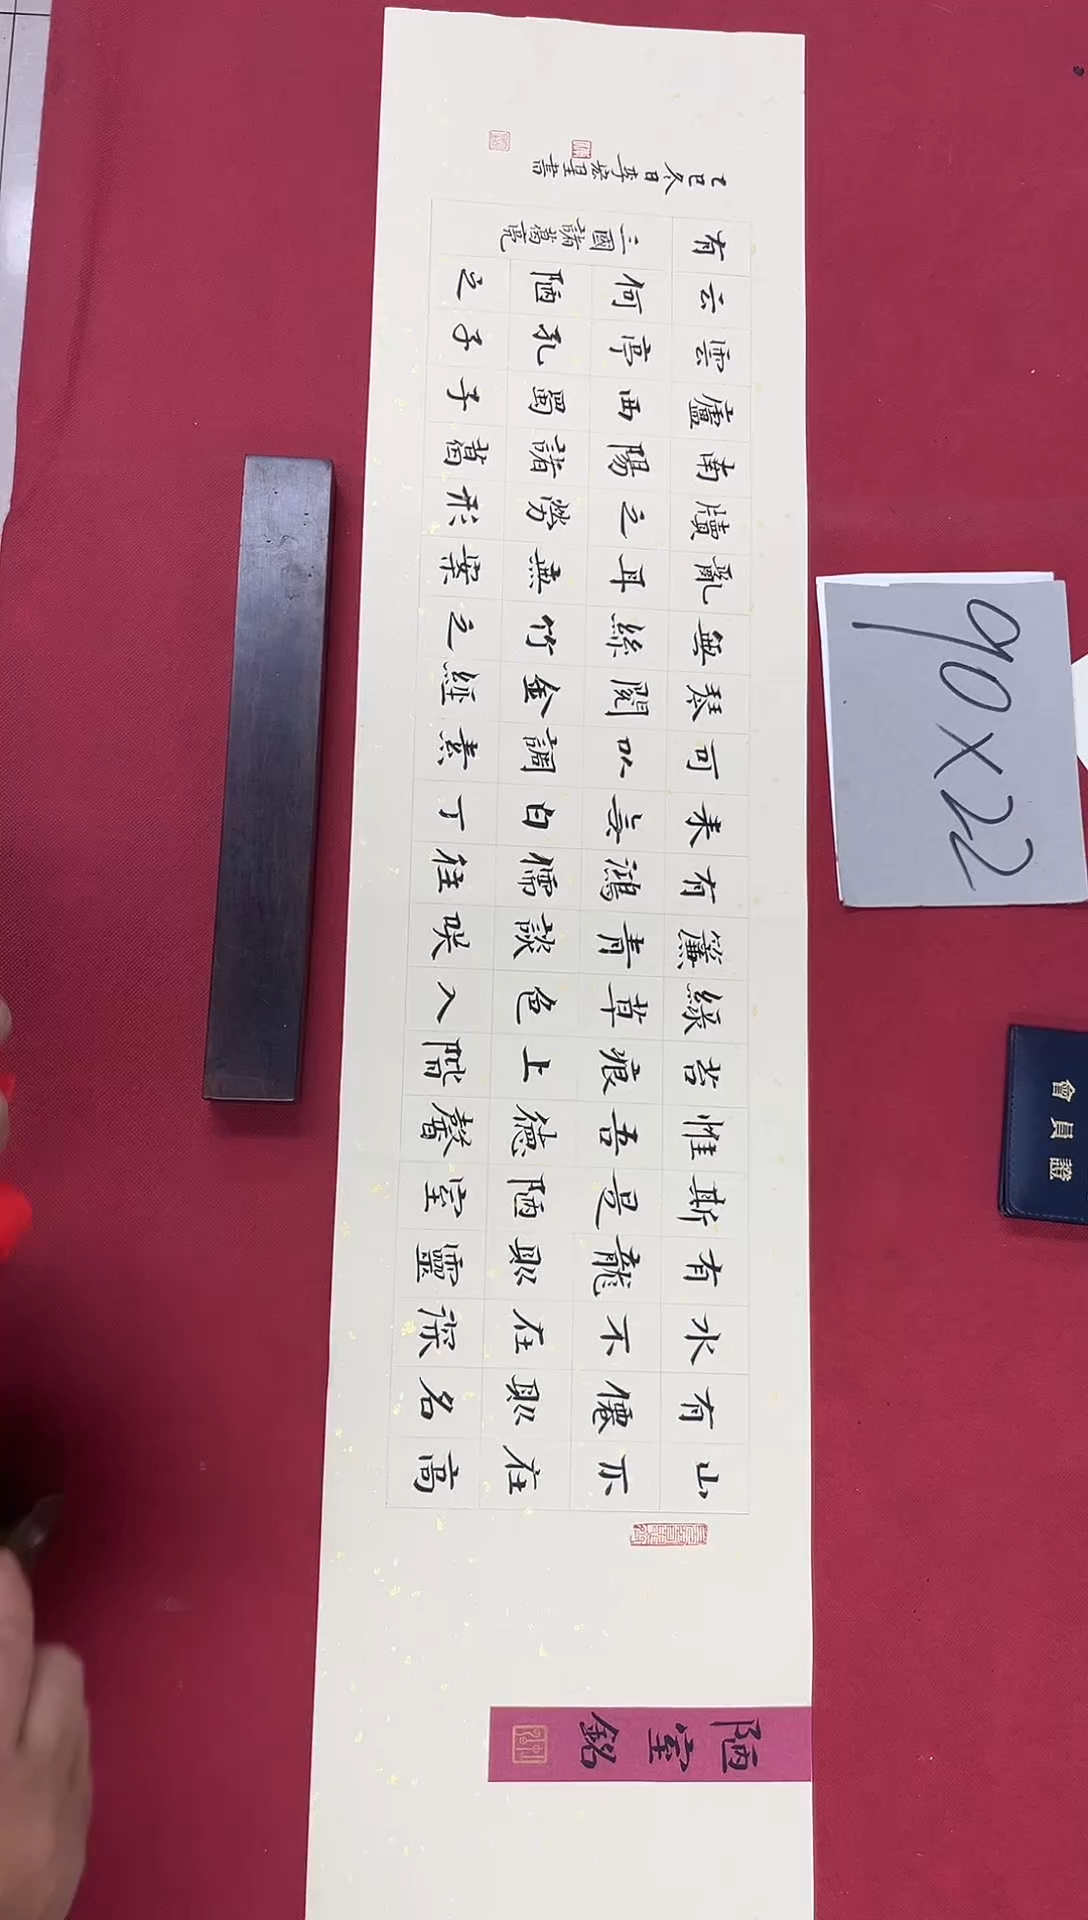 陋室銘
山不在高
有僊則名
水不在深
有龍則靈
斯是陋室
惟吾德馨
苔痕上階
緑草色入
簾青談笑
有鴻儒往
来無白丁
可以調素
琴閱金經
無絲竹之
亂耳無案
牘之勞形
南陽諸葛
廬西蜀子
雲亭孔子
云何陋之
有
三國諸葛亮
乙巳冬日李宏星書
90×22
會員證